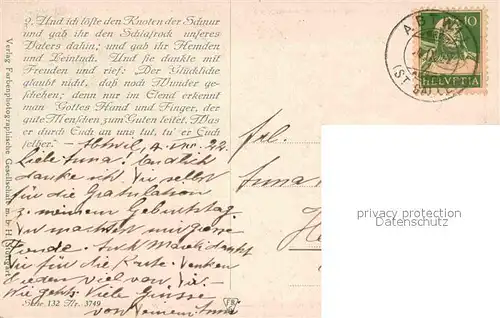 2. Und ich löste den Knoten der Schnur
und gab ihr den Schlafrock unseres
Vaters dahin; und gab ihr Hemden
und Leintuch. Und sie dankte mit
Freuden und rief: Der Glückliche
glaubt nicht, daß noch Wunder ge-
schehen; denn nur im Elend erkennt
man Gottes Hand und Finger, der
gute Menschen zum Guten leitet. Was
er durch Euch an uns tut, tu' er Euch
selber."
Abtwil, 22.
Liebe Anna! Endlich
danke ich Dir selbst
für die Gratulation
z. meinem Geburtstag.
Wir machten mir grosse
Freude. Auch dankt
Dir für die Karte. Denken
viel von Dir.
Wie gehts. Viele Grüsse
von Deinem
Serie 132 Nr. 3749
Verlag Farbenphotographische Gesellschaft m. b. H. Stuttgart
Frl.
Anna
10
HELVETIA
(ST. GALLEN)
privacy protection
Datenschutz